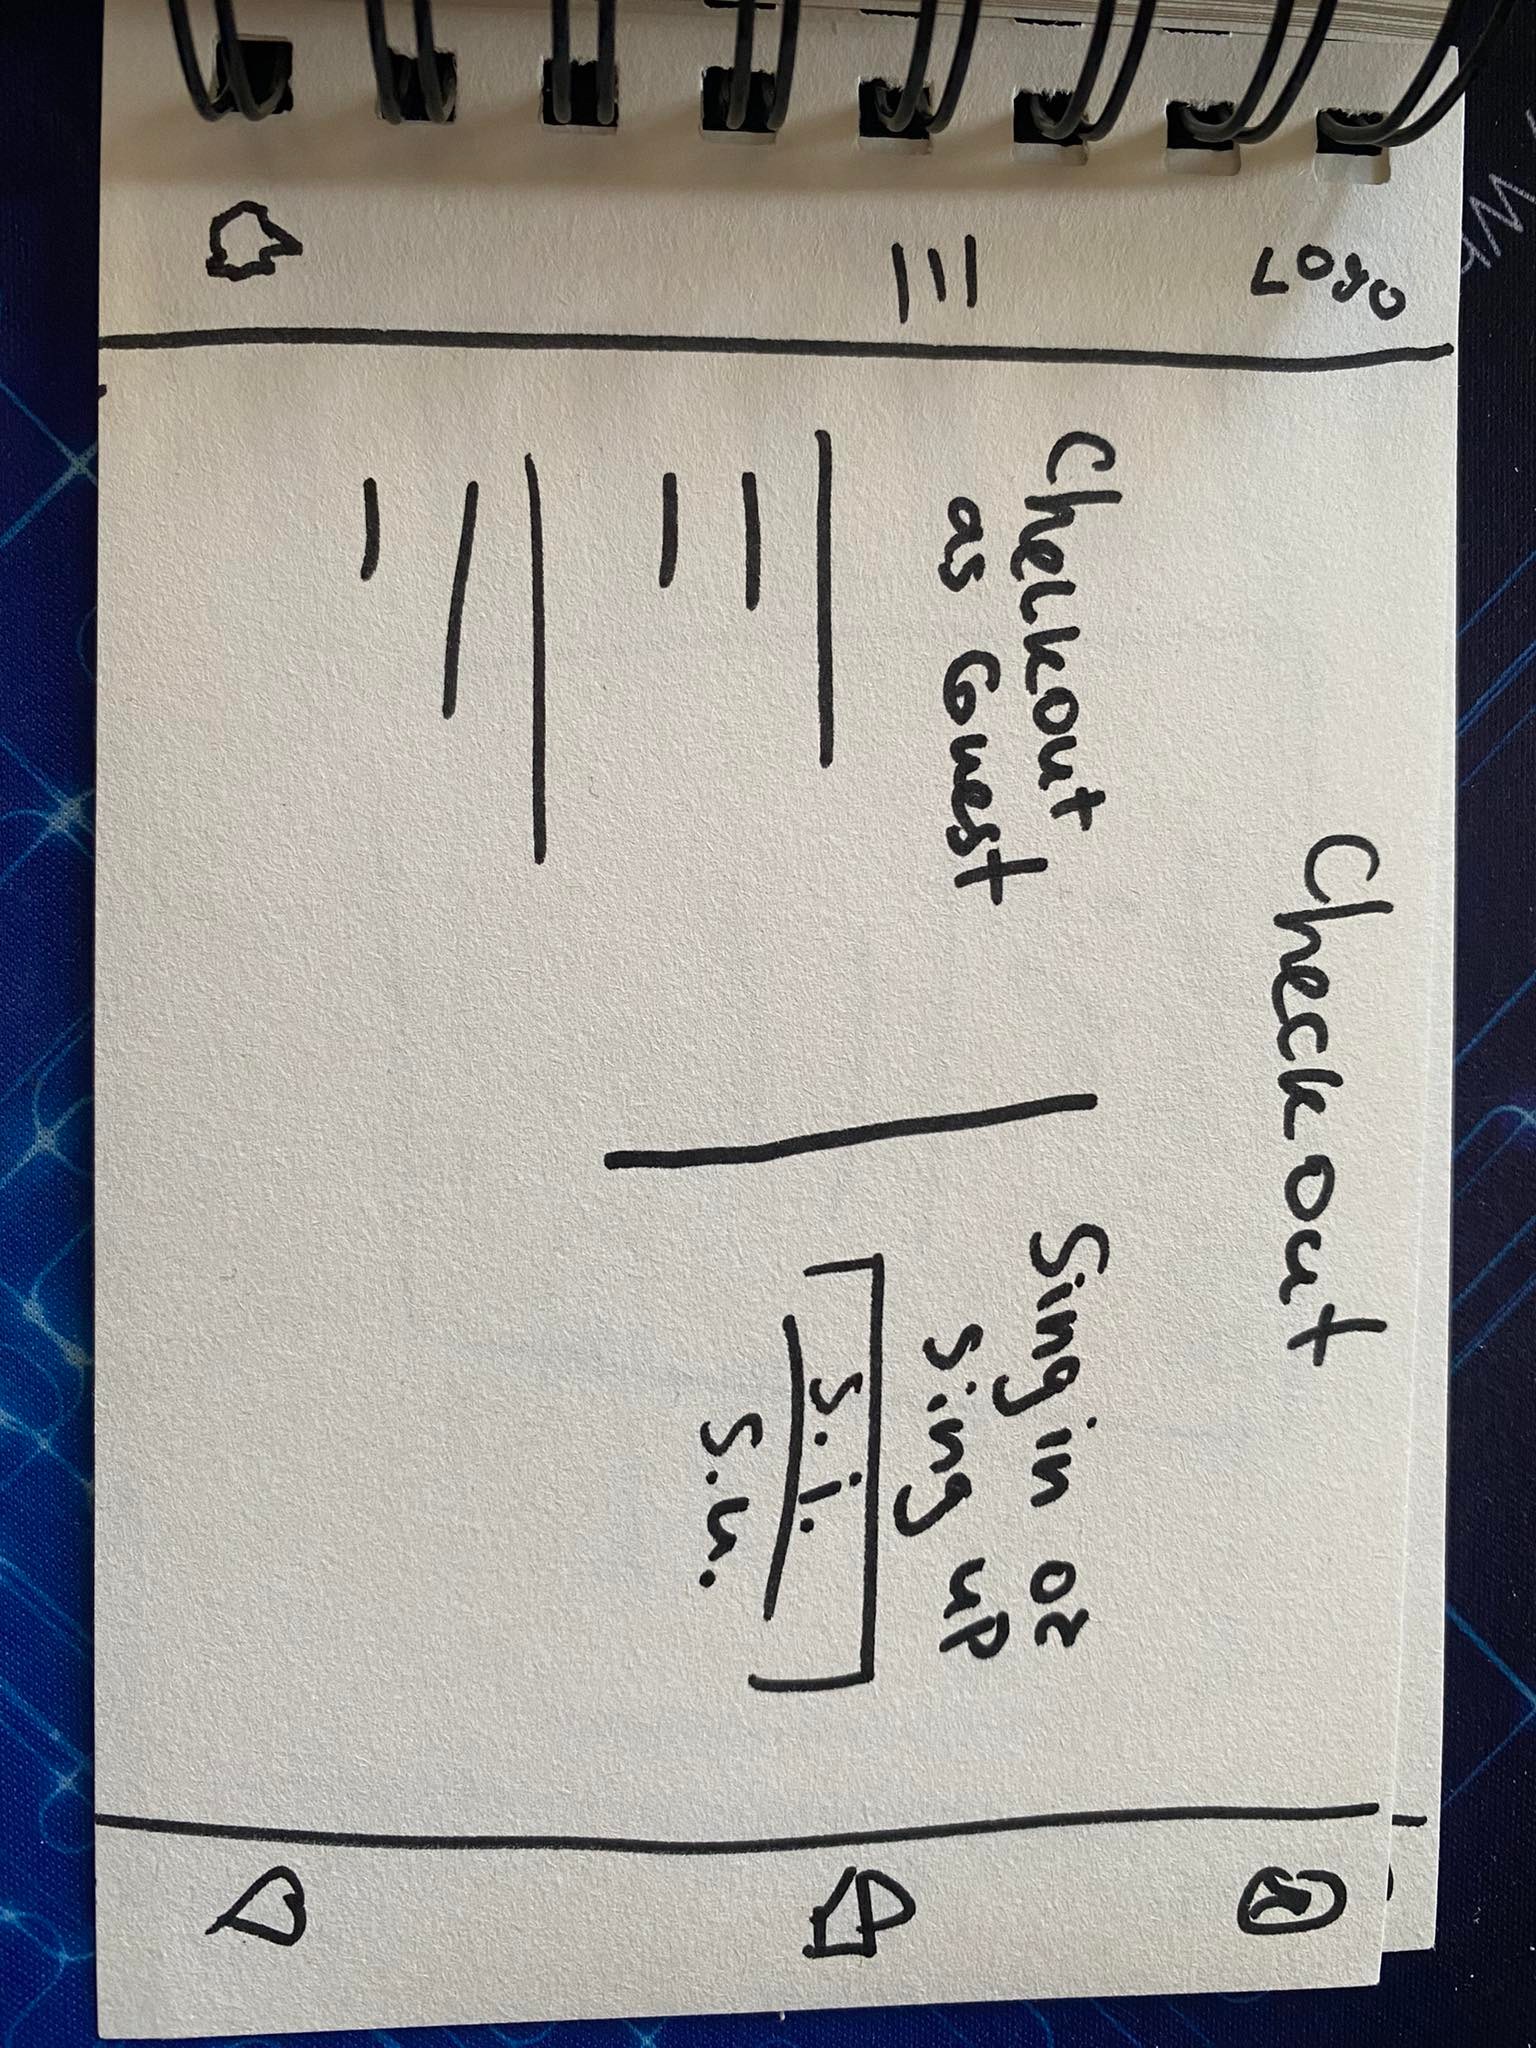 Logo
Checkout
Checkout
as Guest
Sing in or
Sing up
S.i.
S.u.